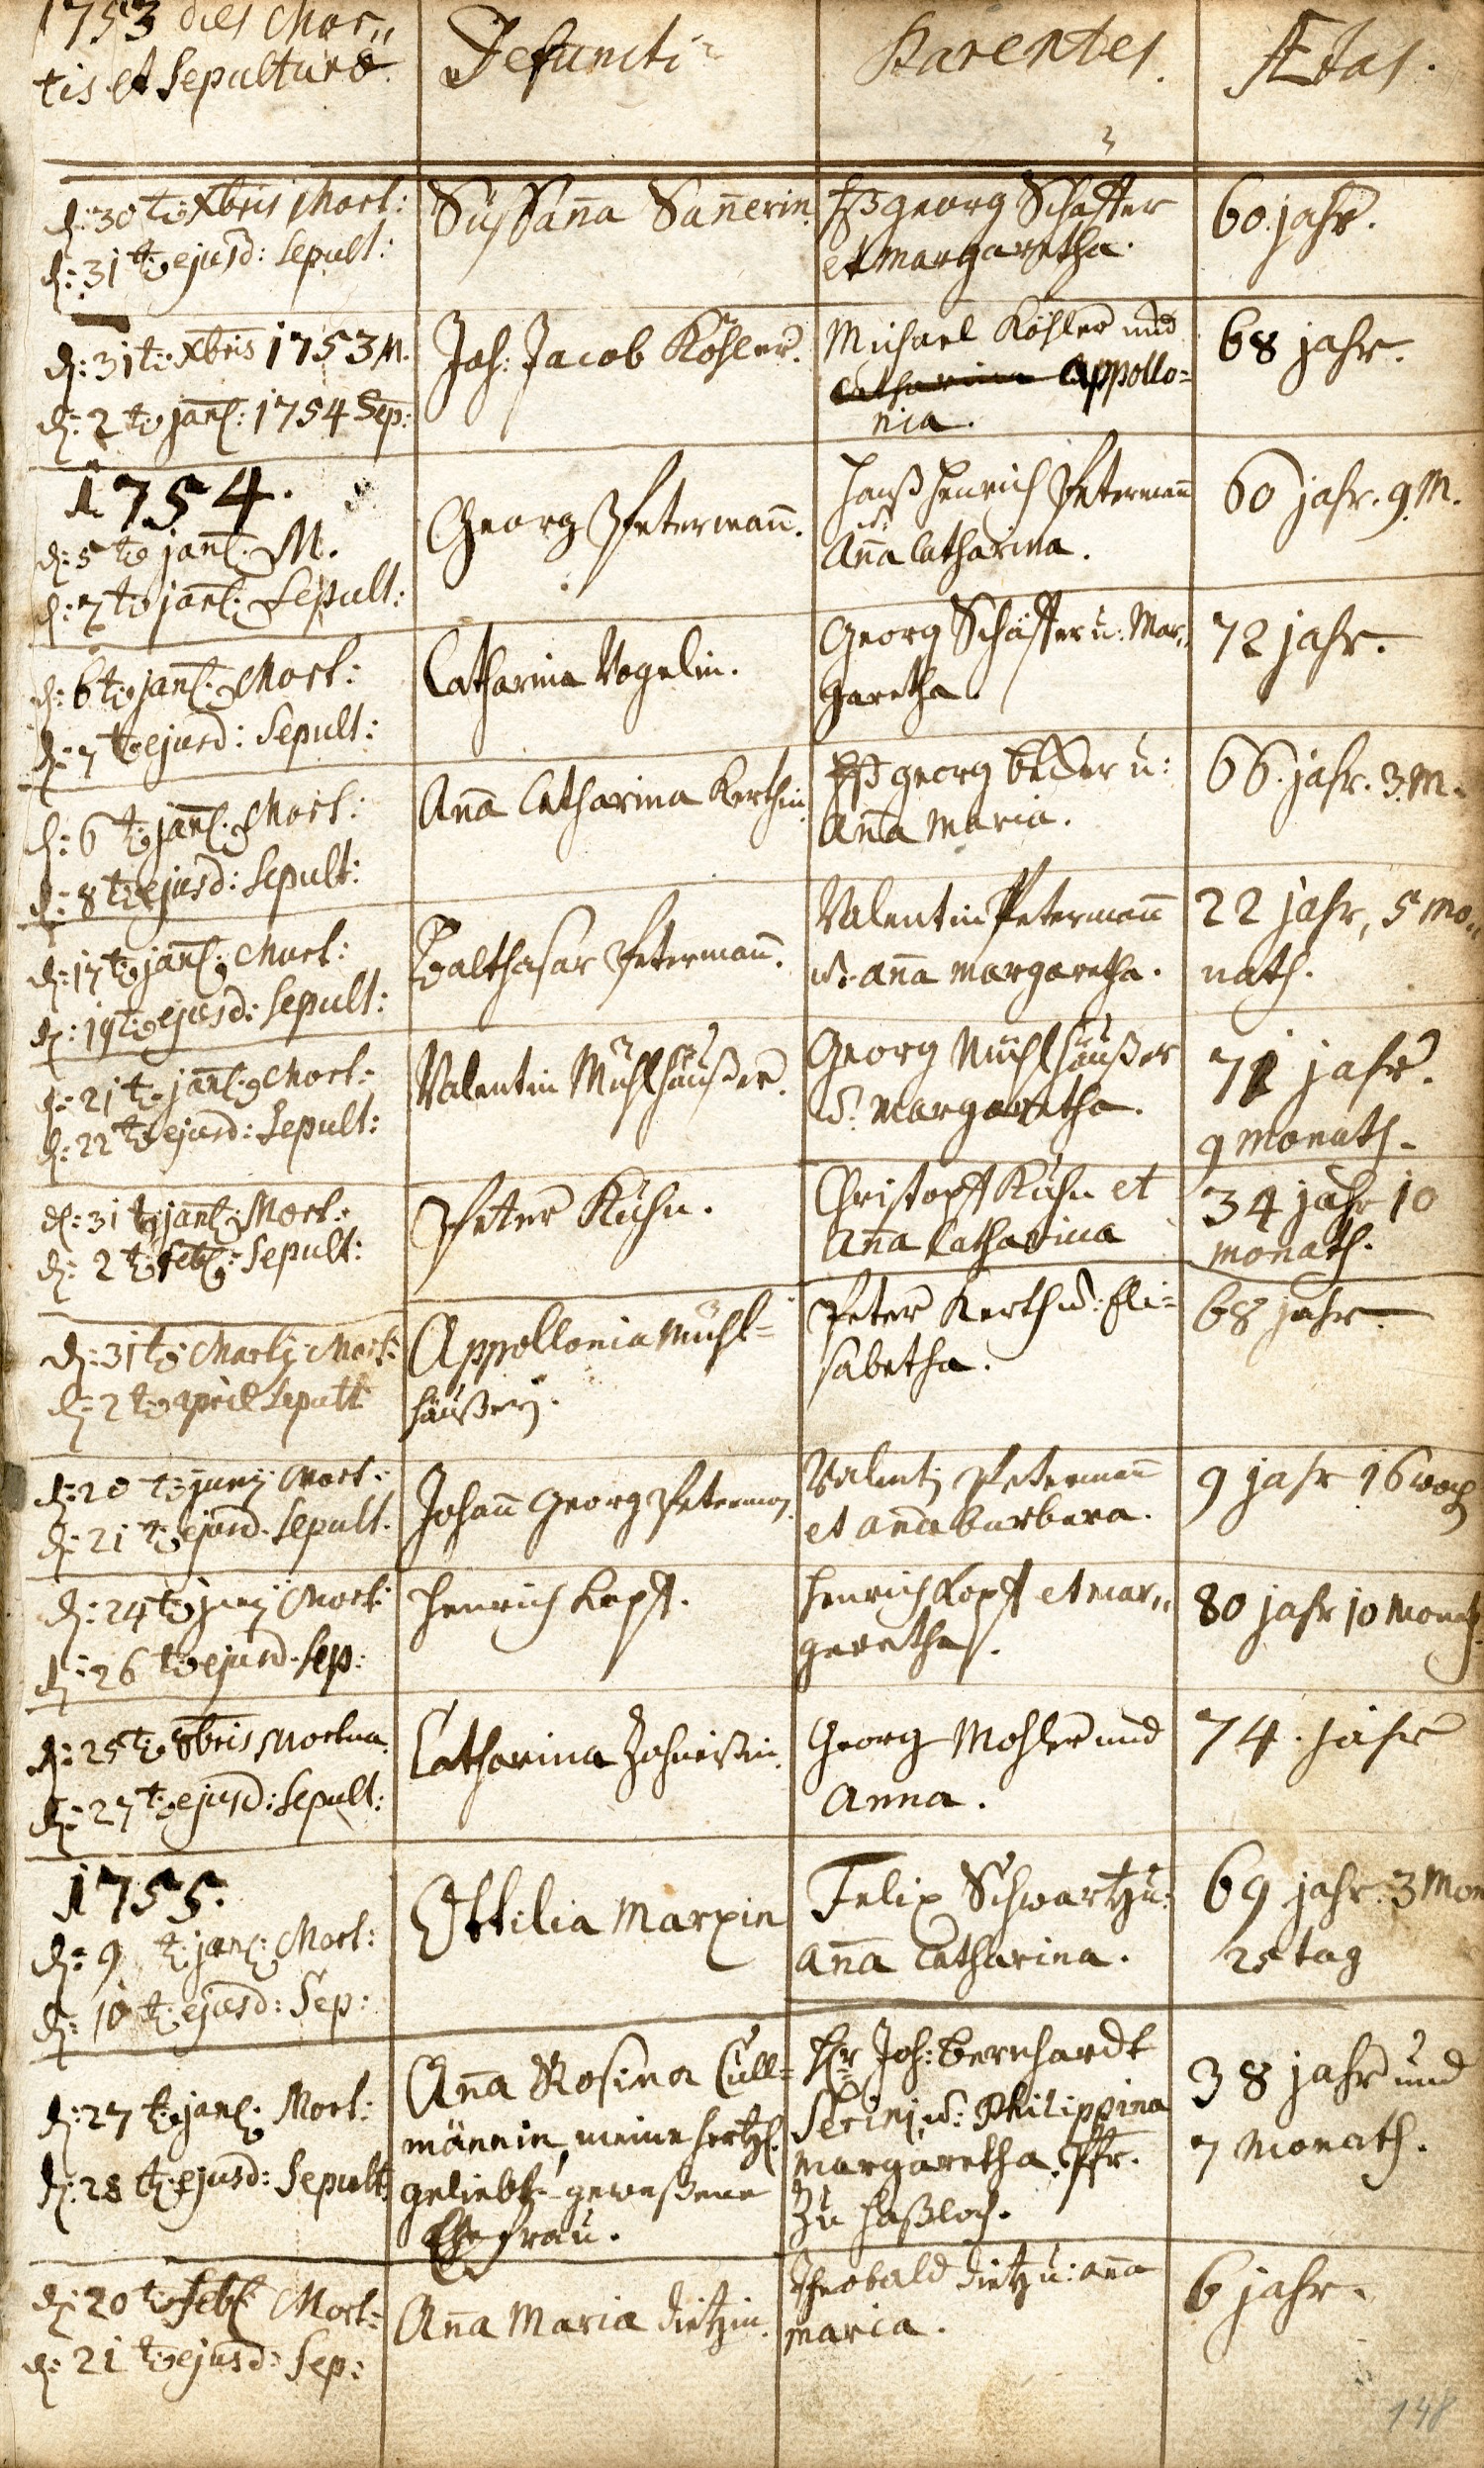 1753 dies Mor„
tis et Sepulturæ.
Defuncti
Parentes.
Ætas.
d: 30 t: Xbris Mort:
d: 31 t: ejusd: Sepult:
Sußanna Sañerin.
Hß georg Schäffer
et Margaretha.
60. jahr.
d: 31 t: Xbris 1753 M.
d: 2 t: janˡ: 1754 Sep:
Joh: Jacob Köhler.
Michael Köhler und
Catharina Appollo=
nia.
68 jahr.
1754.
d: 5 t: janˡ: M.
d: 7 t: janˡ: Sepult:
Georg Petermañ.
Hanß Henrich Petermañ
Aña Catharina.
60 jahr. 9 M.
d: 6 t: janˡ: Mort:
d: 7 t: ejusd: Sepult:
Catharina Vogelin.
Georg Schäffer u: Mar„
garetha.
72 jahr.
d: 6 t: janˡ: Mort:
d: 8 t: ejusd: Sepult:
Aña Catharina Kerthin
Hß georg u:
Aña Maria.
66. jahr. 3 M.
d: 17 t: janˡ: Mort:
d: 19 t: ejusd: Sepult:
Balthasar Petermañ.
Valentin Petermañ
u: aña margaretha.
22 jahr, 5 mo„
nath.
d: 21 t: janˡ: Mort:
d: 22 t: ejusd: Sepult:
Valentin Mühlhäußer.
Georg Mühlhäußer
u: Margaretha.
71 jahr.
9 monath.
d: 31 t: janˡ: Mort:
d: 2 t: febˡ: Sepult:
Peter Kuhn.
Christoph Kuhn et
Aña Catharina
34 jahr 10
monath.
d: 31 t: Martij Mort:
d: 2 t: april Sepult
Appollonia Mühl=
häußerj.
Peter Kerth u: Eli=
sabetha.
68 jahr.
d: 20 t: junij Mort:
d: 21 t: ejusd: Sepult.
Johañ Georg Petermañ.
Valentj Petermañ
et aña barbara.
9 jahr 16 woch
d: 24 t: junij Mort:
d: 26 t: ejusd. Sep:
Henrich Kopff.
Henrich Kopff et mar„
garetha.
80 jahr 10 Monath
d: 25 t: 8bris Mortua.
d: 27 t: ejusd: Sepult:
Catharina
Georg Mohler und
Anna.
74. jahr
1755.
d: 9 t: janˡ: Mort:
d: 10 t: ejusd: Sep:
Ottilia Marxin
Felix Schwartz u:
aña Catharina.
69 jahr. 3 Mon
25 tag
d: 27 t: janˡ: Mort:
d: 28 t: ejusd: Sepult:
Aña Rosina Cull=
männin, meine hertzl.
geliebt gewesene
Ehefrau.
Hr Joh: Bernhardt
u: Philippina
Margaretha. Pfr.
zu Haßloch.
38 jahr und
7 Monath.
d: 20 t: febˡ: Mort:
d: 21 t: ejusd: Sep:
Aña Maria Dietzin.
Theobald Dietz u: aña
maria.
6 jahr.
148